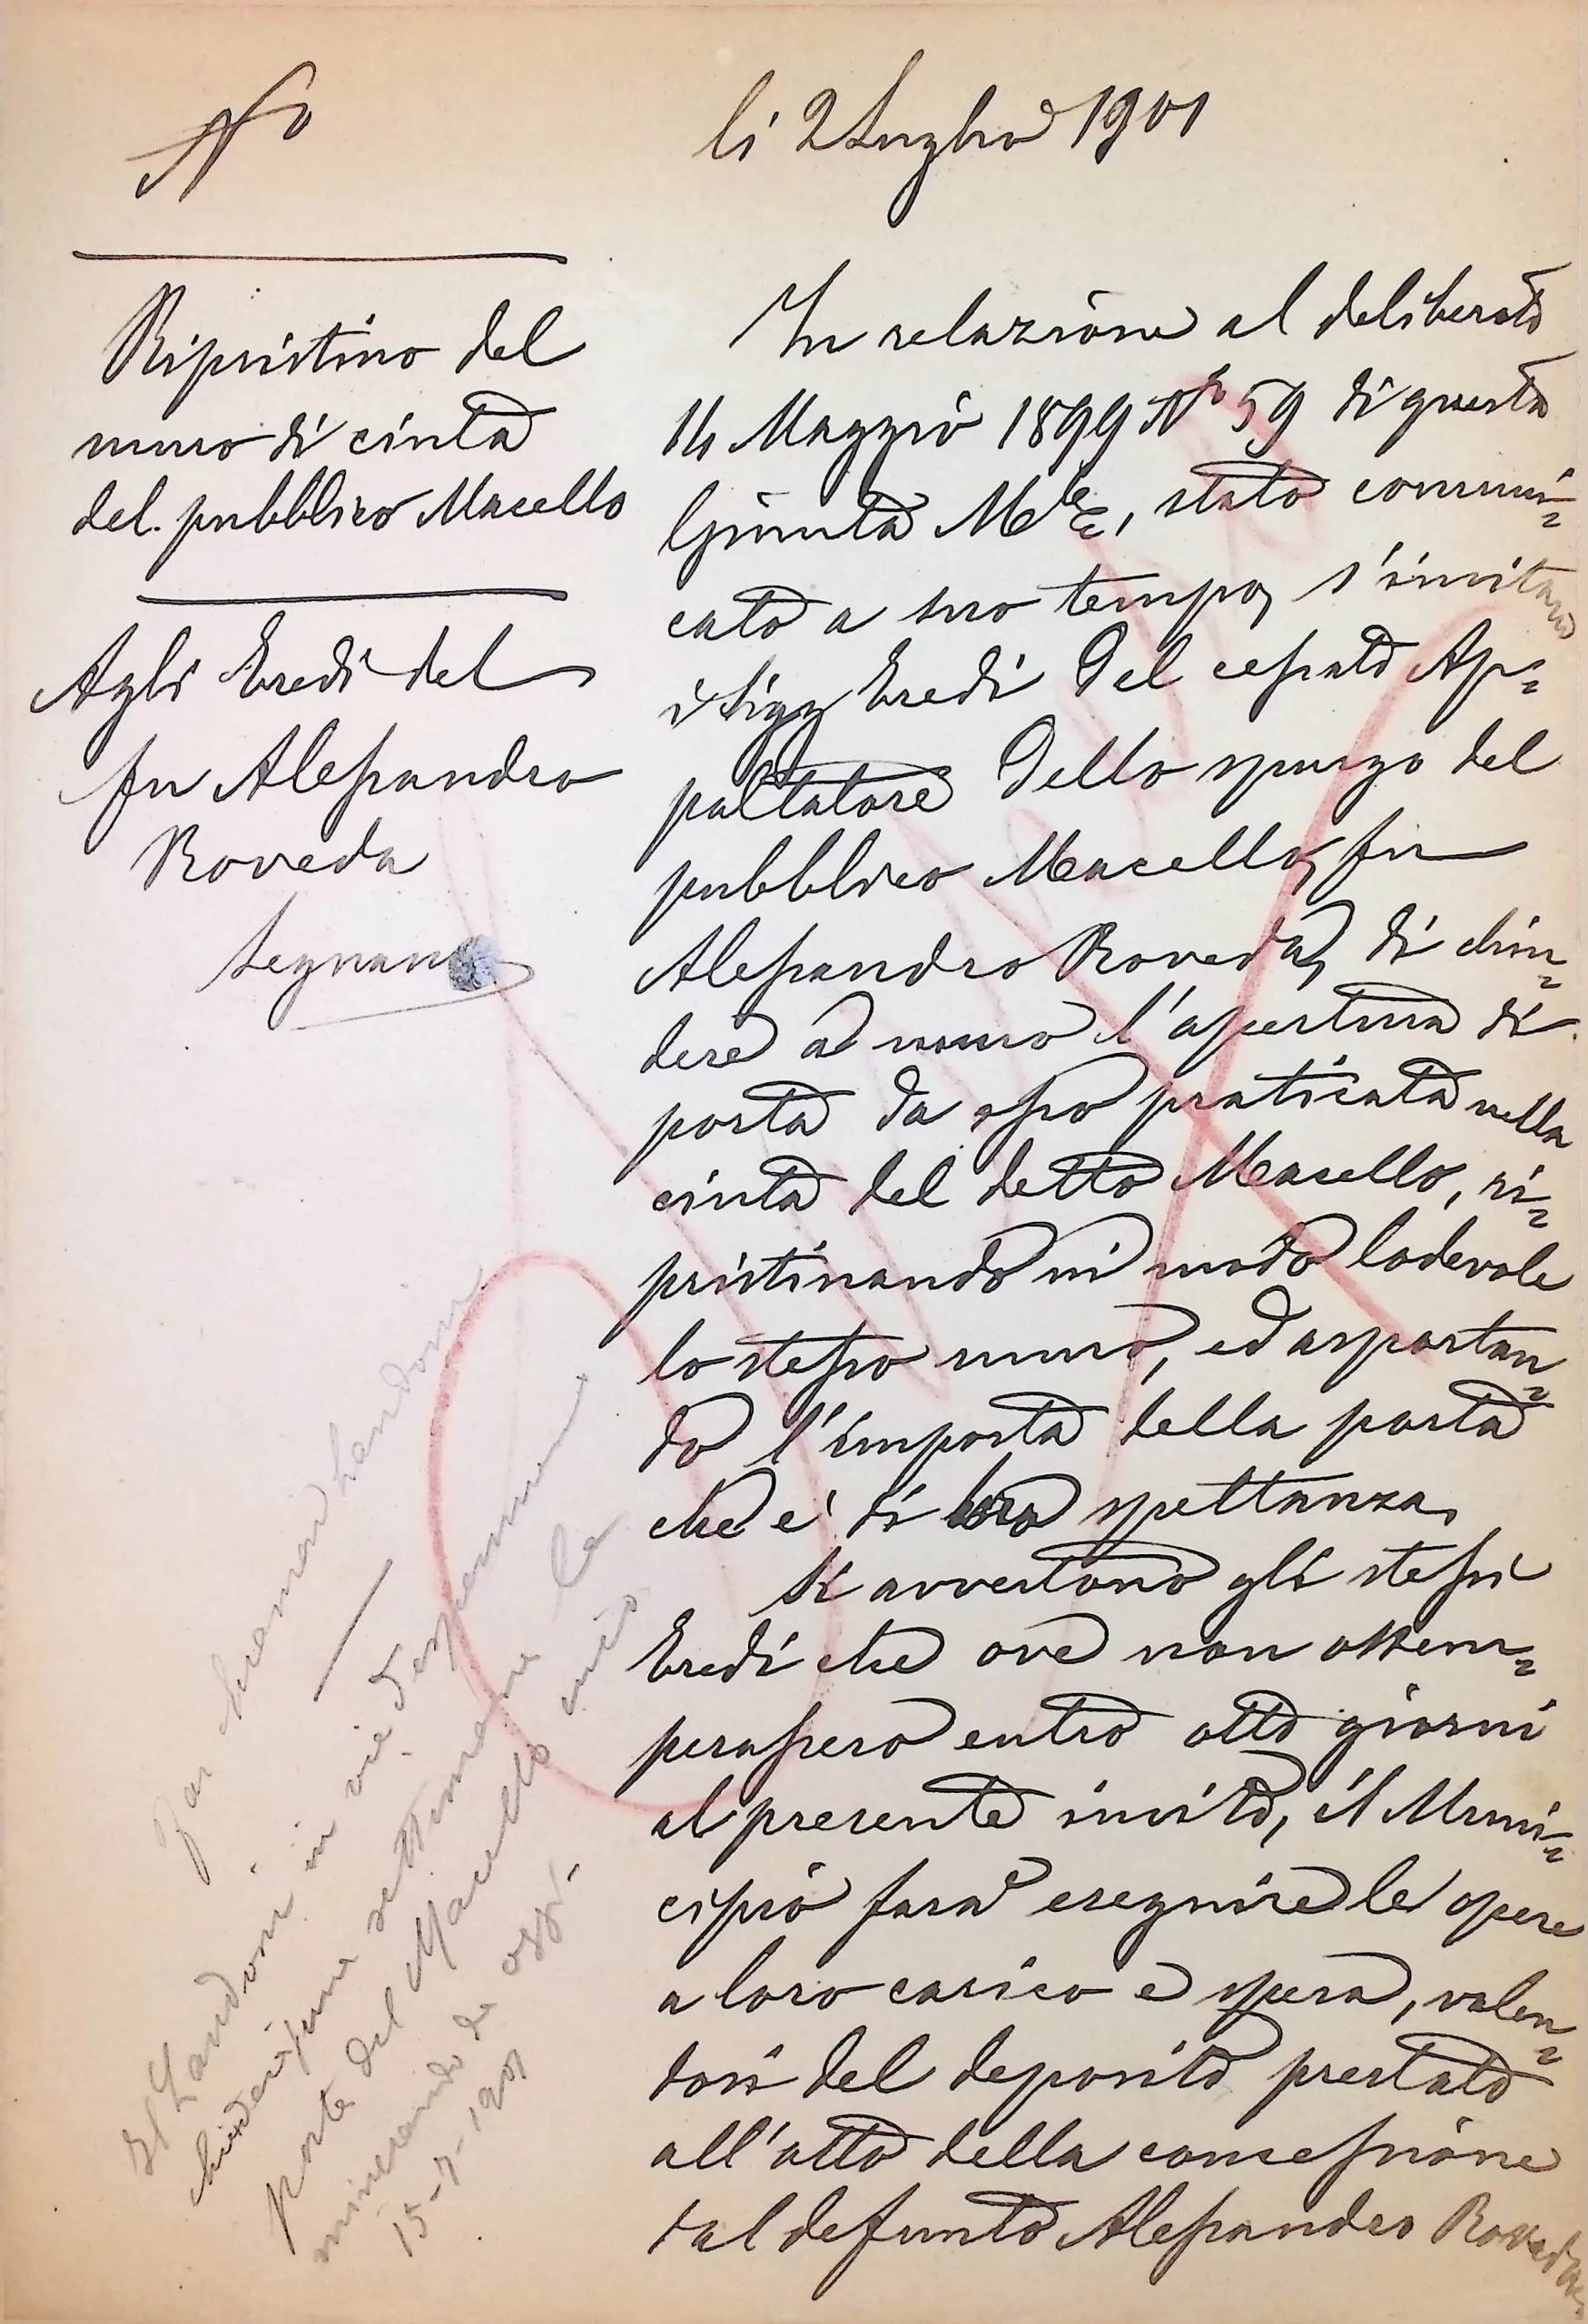 No
li 2 Luglio 1901
Ripristino del
muro di cinta
del pubblico Macello
Agli Eredi del
fu Alessandro
Roveda
Legnano
In relazione al deliberato
14 Maggio 1899 No 59 di questa
Giunta Mle, stato comuni=
cato a suo tempo, s'invitano
i Sigg Eredi del cessato Ap=
paltatore dello spurgo del
pubblico Macello, fu
Alessandro Roveda, di chiu=
dere a muro l'apertura di
porta da esso praticata nella
cinta del detto Macello, ri=
pristinando in modo lodevole
lo stesso muro, ed asportan=
do l'imposta della porta
che è di loro spettanza.
Si avvertono gli stessi
Eredi che ove non ottem=
perassero entro otto giorni
al presente invito, il Muni=
cipio farà eseguire le opere
a loro carico e spesa, valen=
dosi del deposito prestato
all'atto della concessione
dal defunto Alessandro Roveda
Far chiamare Landoni
Il Landoni in via d'esperimento
chiuderà una settimana la
porta del Macello
incominciando da oggi.
15-7-1901